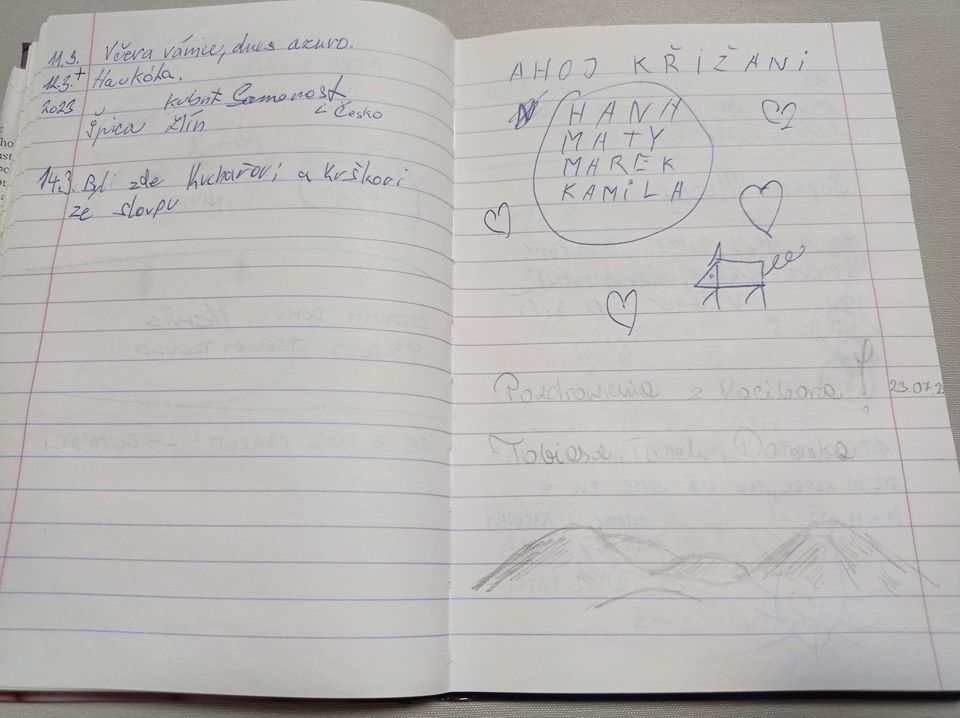 11.3. Včera vánice, dnes azuro.
12.3.+ Haukóla.
2023 kubnt Samonost
↳ Česko
Špica Zlín
14.3. Byli zde Kuchařovi a Krškovi
ze sloupu
AHOJ KŘIŽANI
HANA
MATY
MAREK
KAMILA
Pozdrowienia z Raciborza! 23.07.2
Tobiasz, Tomek, Dominika